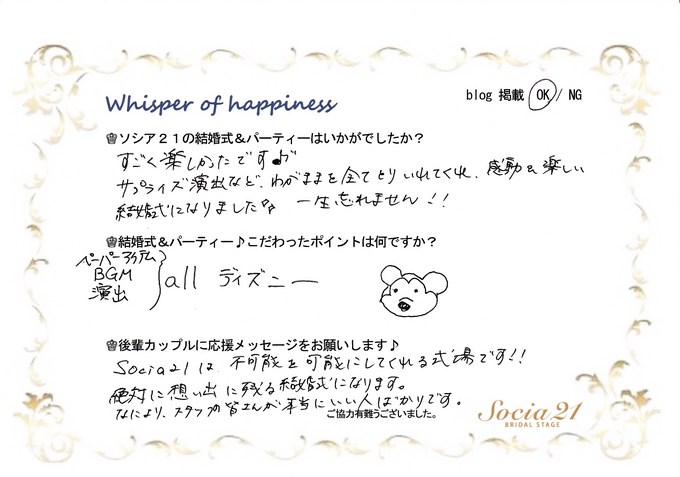 Whisper of happiness
blog 掲載 OK / NG
ソシア21の結婚式&パーティーはいかがでしたか?
すごく楽しかったです♪
サプライズ演出など、わがままを全てとりいれてくれ、感動&楽しい
結婚式になりました 一生忘れません!!
結婚式&パーティー♪こだわったポイントは何ですか?
ペーパーアイテム
BGM
演出
all ディズニー
後輩カップルに応援メッセージをお願いします♪
Socia21は、不可能を可能にしてくれる式場です!!
絶対に想い出に残る結婚式になります。
なにより、スタッフの皆さんが本当にいい人ばかりです。
ご協力有難うございました。
Socia 21
BRIDAL STAGE